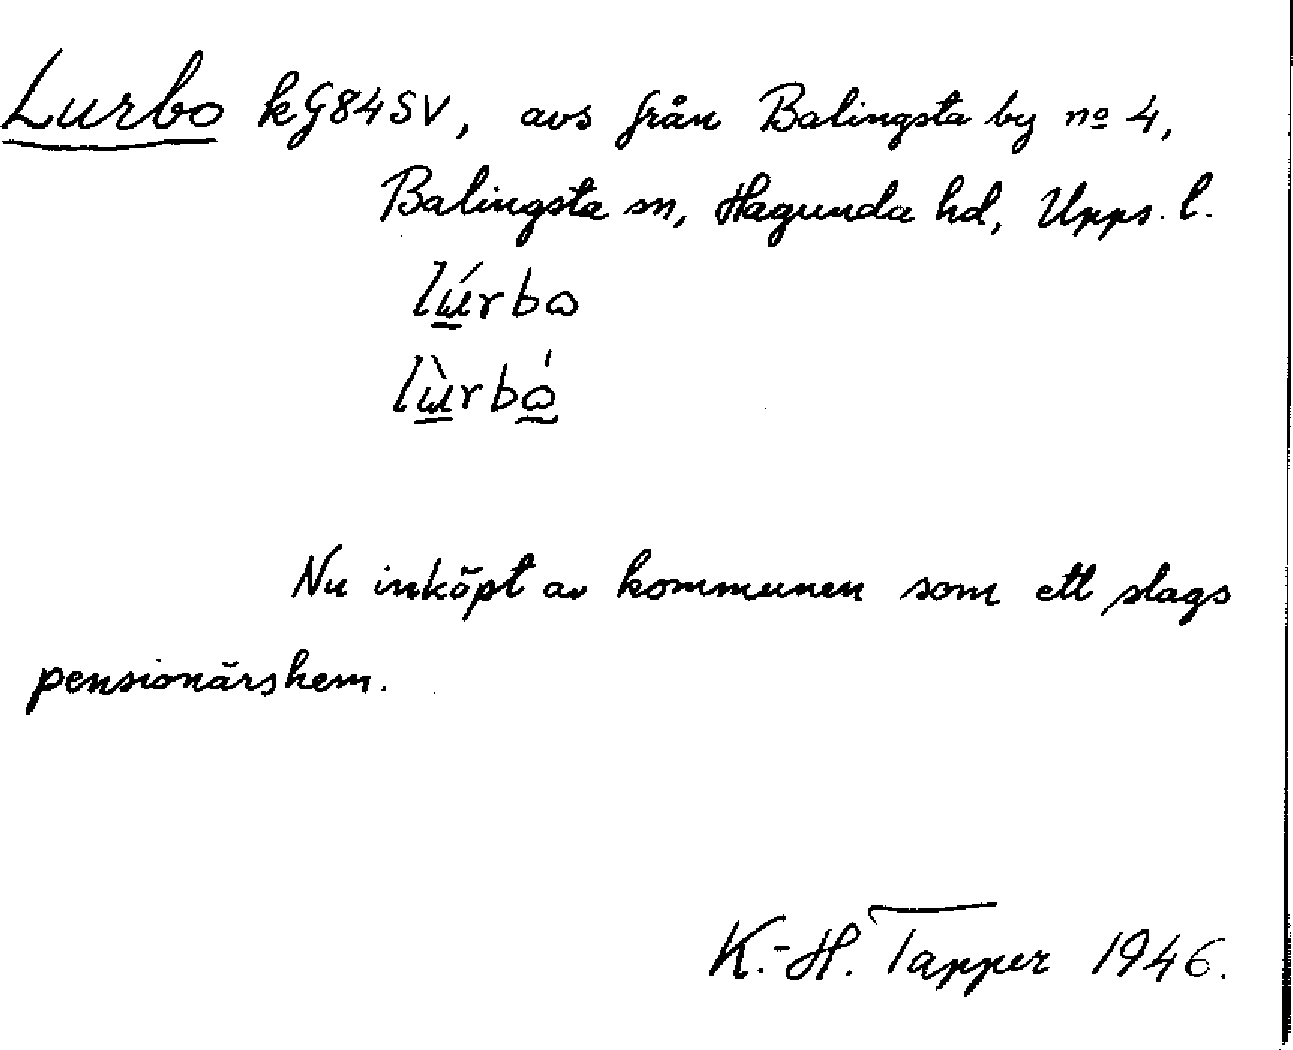 Lurbo kG84SV, avs från Balingsta by no 4,
Balingsta sn, Hagunda hd, Upps. l.
lú̲rbɷ
lù̲rbɷ̲́
Nu inköpt av kommunen som ett slags
pensionärshem.
K.-H. Tapper 1946.